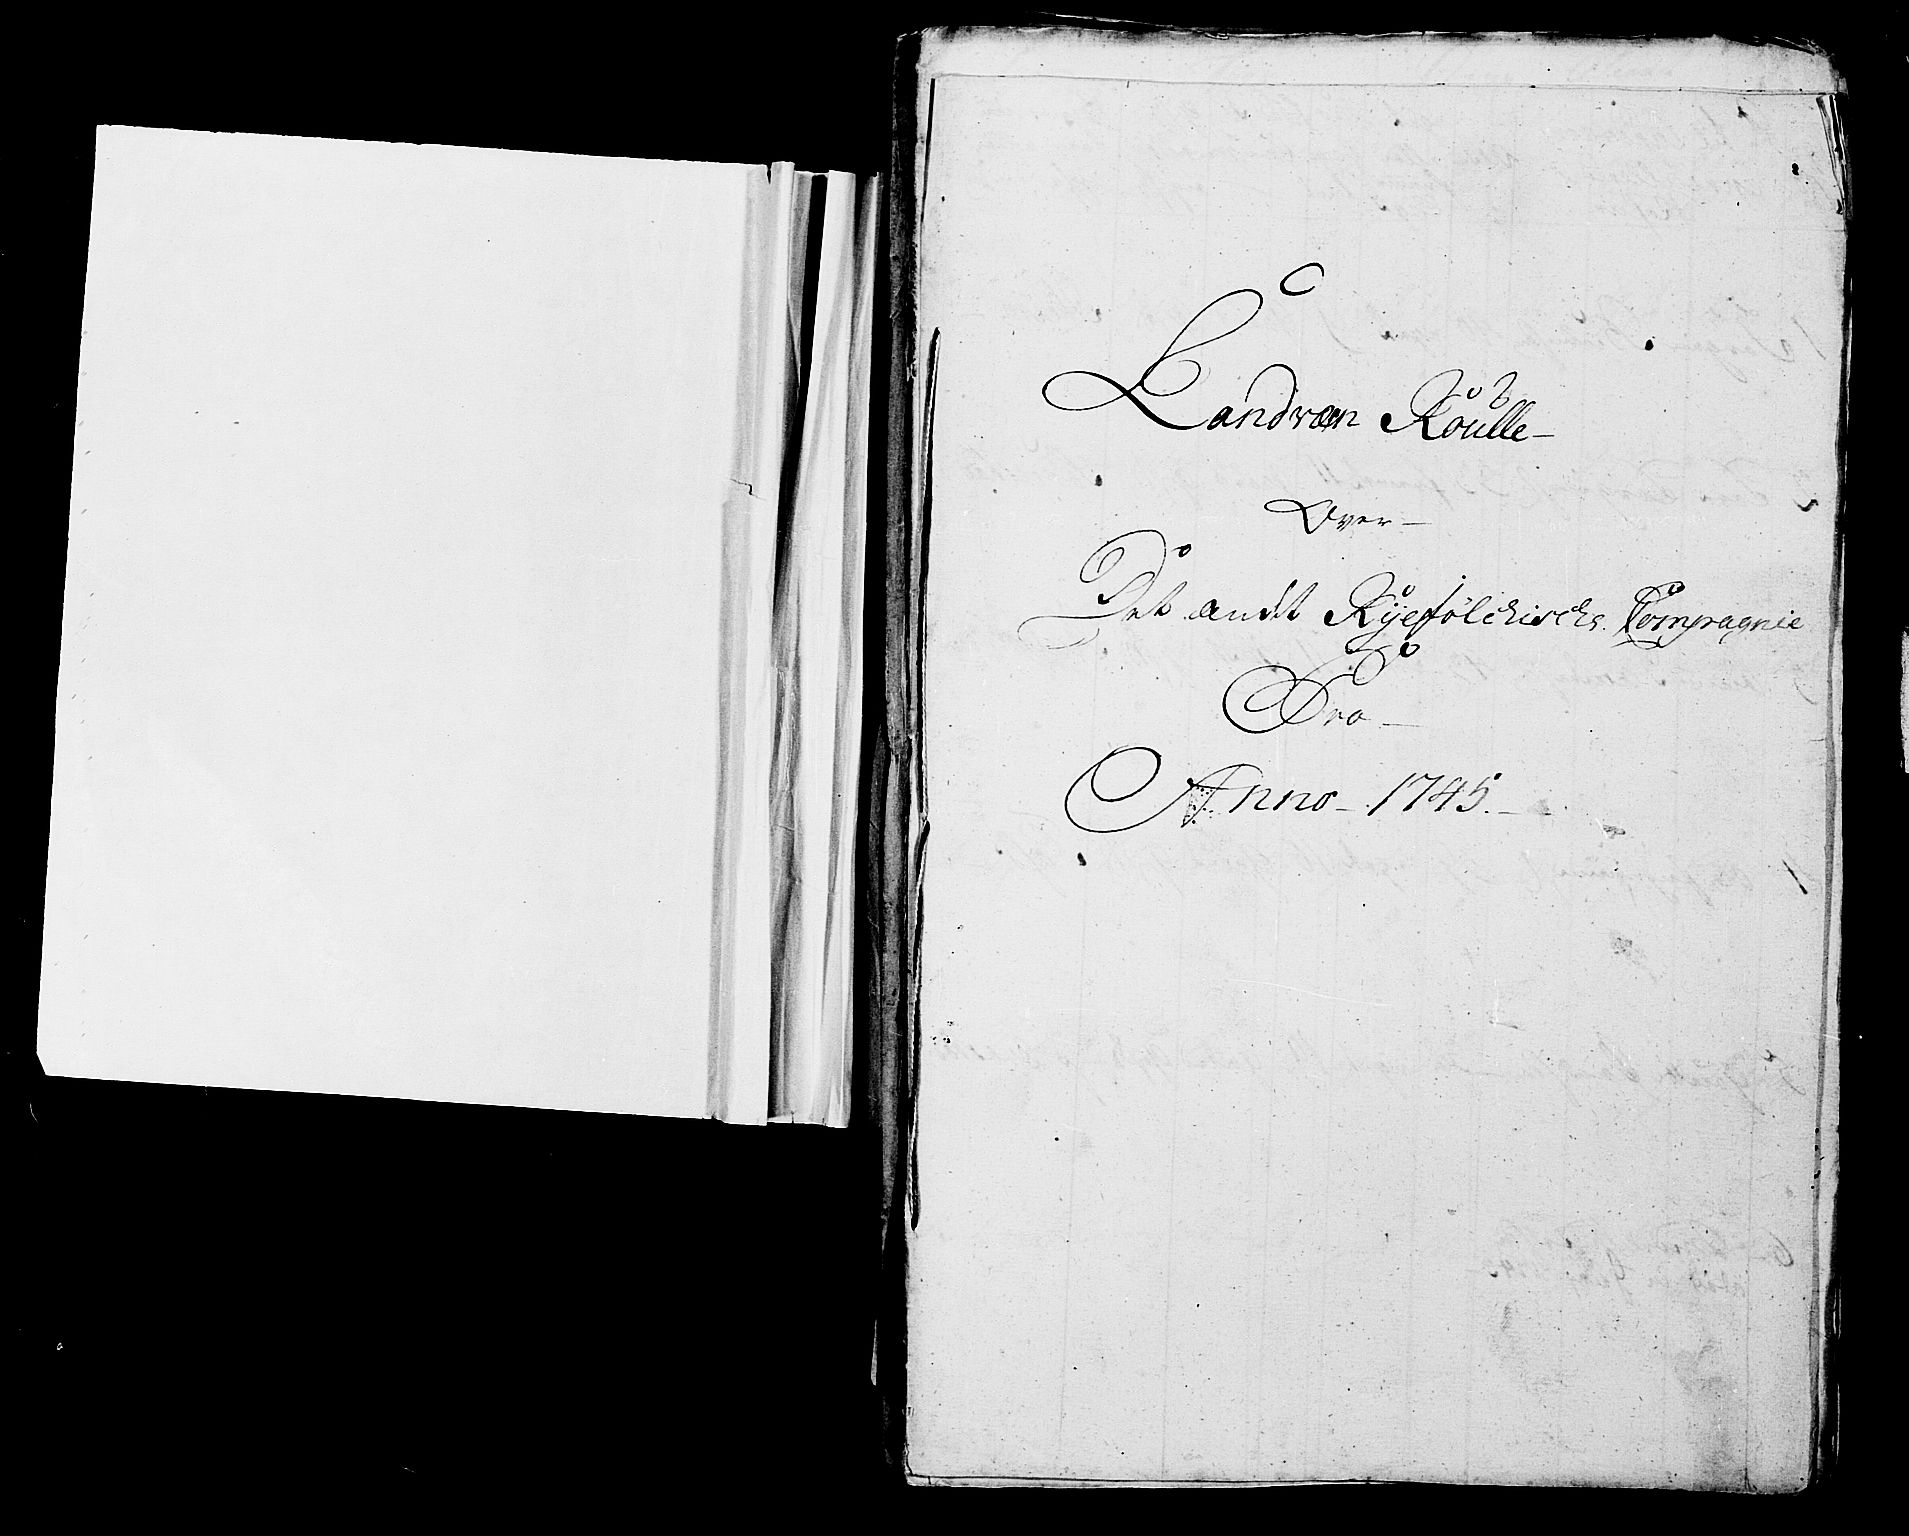 C
Landværn Roulle
Over
Det andt Ryefölckische Compagnie
Pro
Anno 1745.